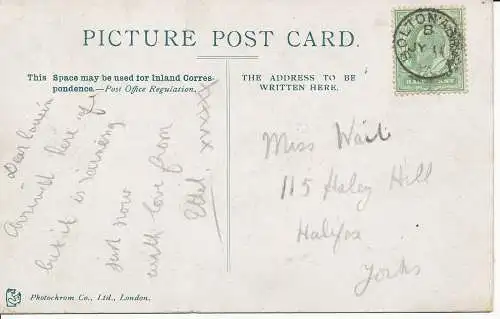 PICTURE POST CARD.
This Space may be used for Inland Corres-
pondence.—Post Office Regulation.
THE ADDRESS TO BE
WRITTEN HERE.
BOLTON
B
JY 11
Dear Cousin
Arrived here
but it is raining
just now
with love from
Ethel. xxxxx
Miss Wait
115 Haley Hill
Halifax
Yorks
Photochrom Co., Ltd., London.